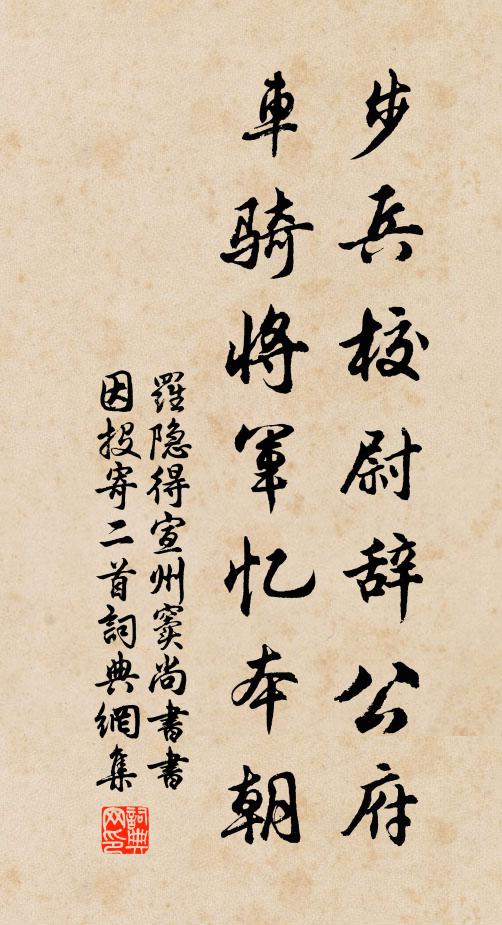 步兵校尉辞公府
車骑将军忆本朝
羅隐得宣州窦尚書書
因投寄二首詞典網集
詞典网印